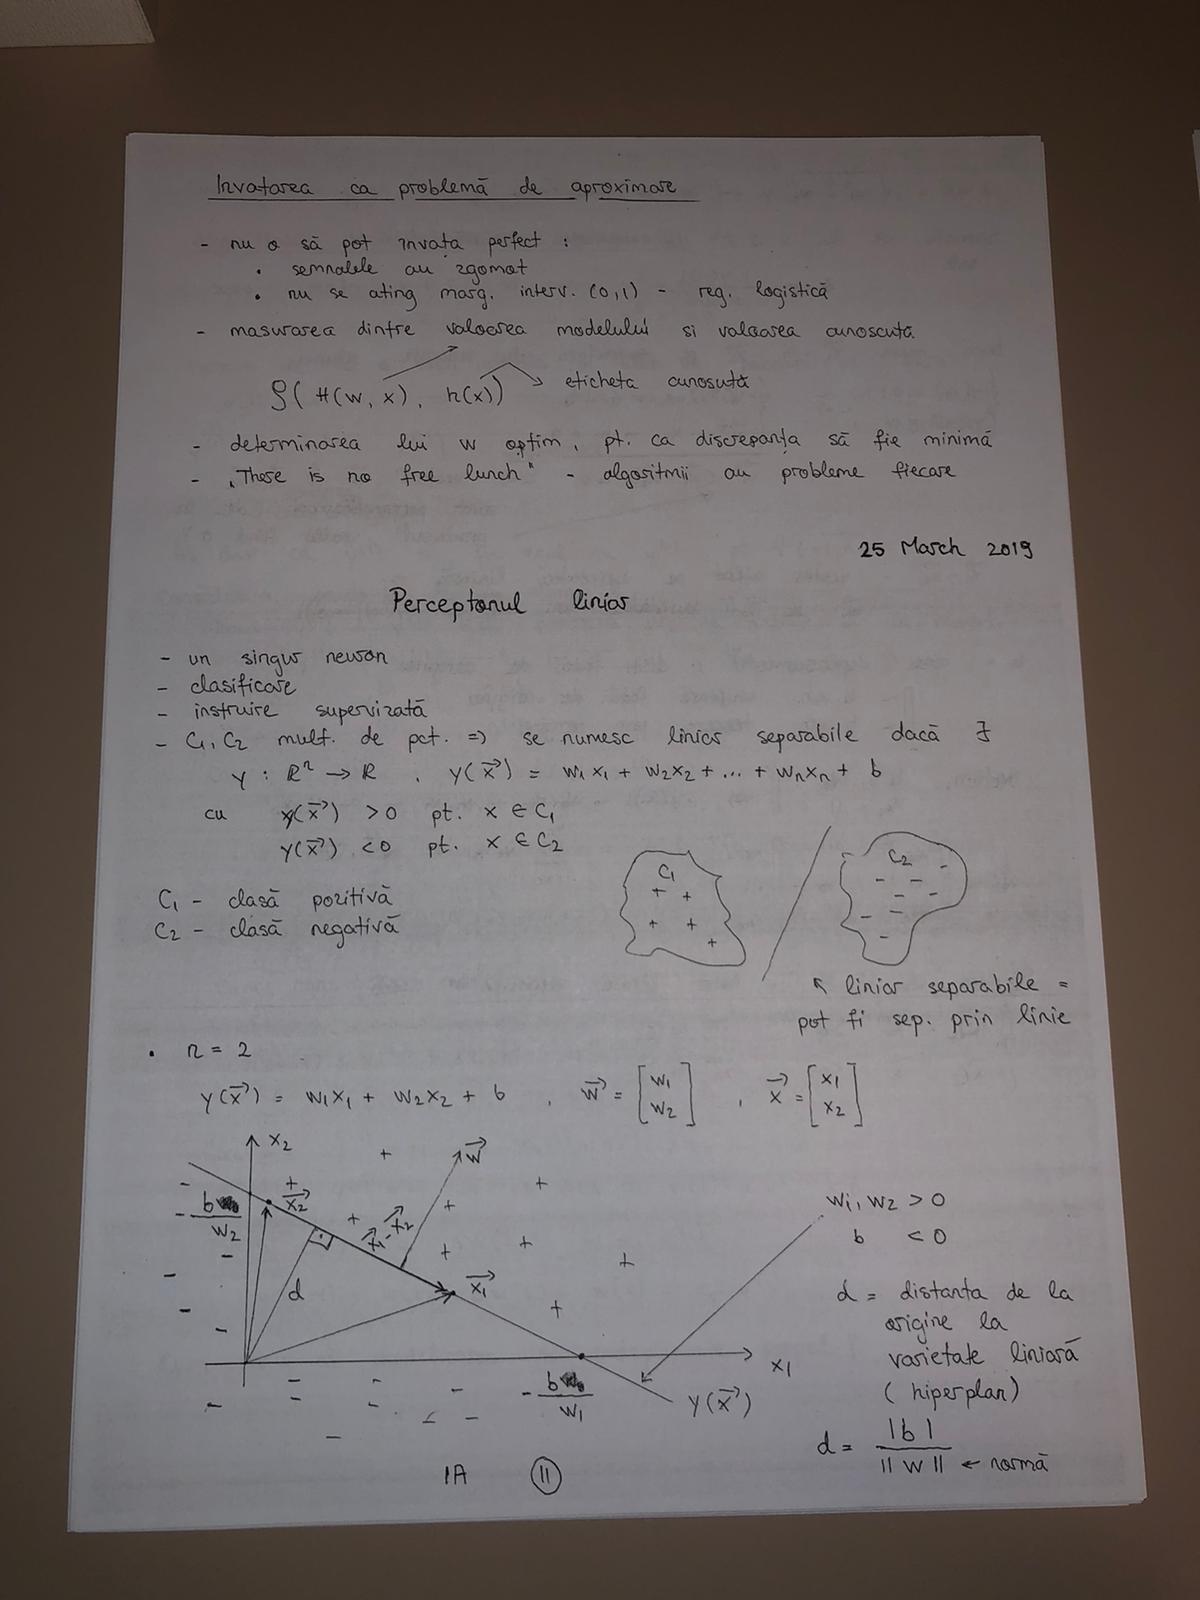 Invatarea ca problemă de aproximare
- nu o să pot învața perfect :
• semnalele au zgomot
• nu se ating marg. interv. (0,1) - reg. logistică
- masurarea dintre valoarea modelului si valoarea cunoscuta
ρ( H(w, x), h(x)) eticheta cunosută
- determinarea lui w optim, pt. ca discrepanța să fie minimă
- „There is no free lunch" - algoritmii au probleme fiecare
25 March 2019
Perceptonul liniar
- un singur neuron
- clasificare
- instruire supervizată
- C1, C2 mult. de pct. => se numesc liniar separabile dacă ∃
y : R^n → R , y(x⃗) = w1x1 + w2x2 + ... + wnxn + b
cu y(x⃗) > 0 pt. x ∈ C1
y(x⃗) < 0 pt. x ∈ C2
C1 - clasă pozitivă
C2 - clasă negativă
C1
C2
↖ liniar separabile =
pot fi sep. prin linie
• n = 2
y(x⃗) = w1x1 + w2x2 + b , w⃗ = [w1 w2] , x⃗ = [x1 x2]
x2
w⃗
x⃗2
- b/w2
x⃗1 - x⃗2
w1, w2 > 0
b < 0
d
x⃗1
d = distanta de la
origine la
varietate liniară
( hiperplan)
x1
- b/w1
y(x⃗)
d = |b| / ||w|| ← normă
IA 11